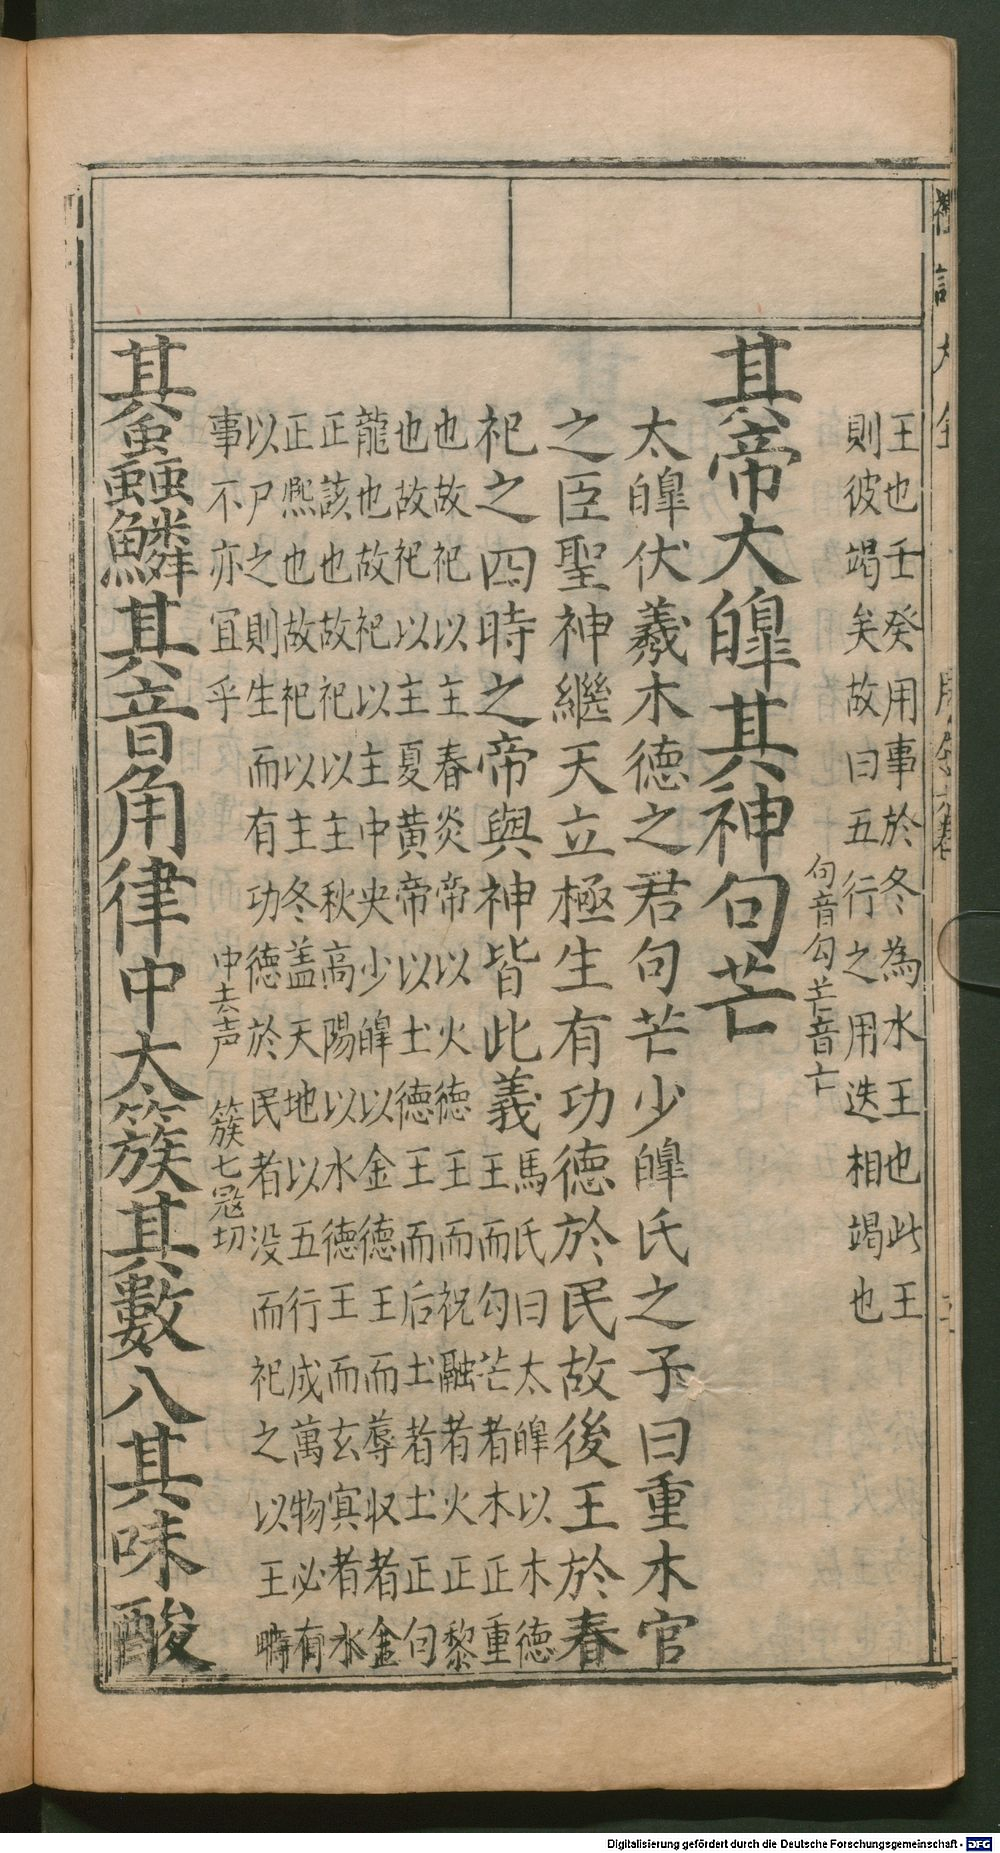 王也壬癸用事於冬為水王也此王
則彼竭矣故曰五行之用迭相竭也
句音勾芒音亡
其帝大皥其神句芒
太皥伏羲木德之君句芒少皥氏之子曰重木官
之臣聖神繼天立極生有功德於民故後王於春
祀之四時之帝與神皆此義
馬氏曰太皥以木德
王而勾芒者木正重
也故祀以主春炎帝以火德王而祝融者火正黎
也故祀以主夏黃帝以土德王而后土者土正句
龍也故祀以主中央少皥以金德王而蓐収者金
正該也故祀以主秋高陽以水德王而玄冥者水
正熈也故祀以主冬盖天地以五行成萬物必有
以尸之則生而有功德於民者没而祀之以王時
事不亦冝乎
中去声
簇七冦切
其蟲鱗其音角律中太簇其數八其味酸
Digitalisierung gefördert durch die Deutsche Forschungsgemeinschaft - DFG